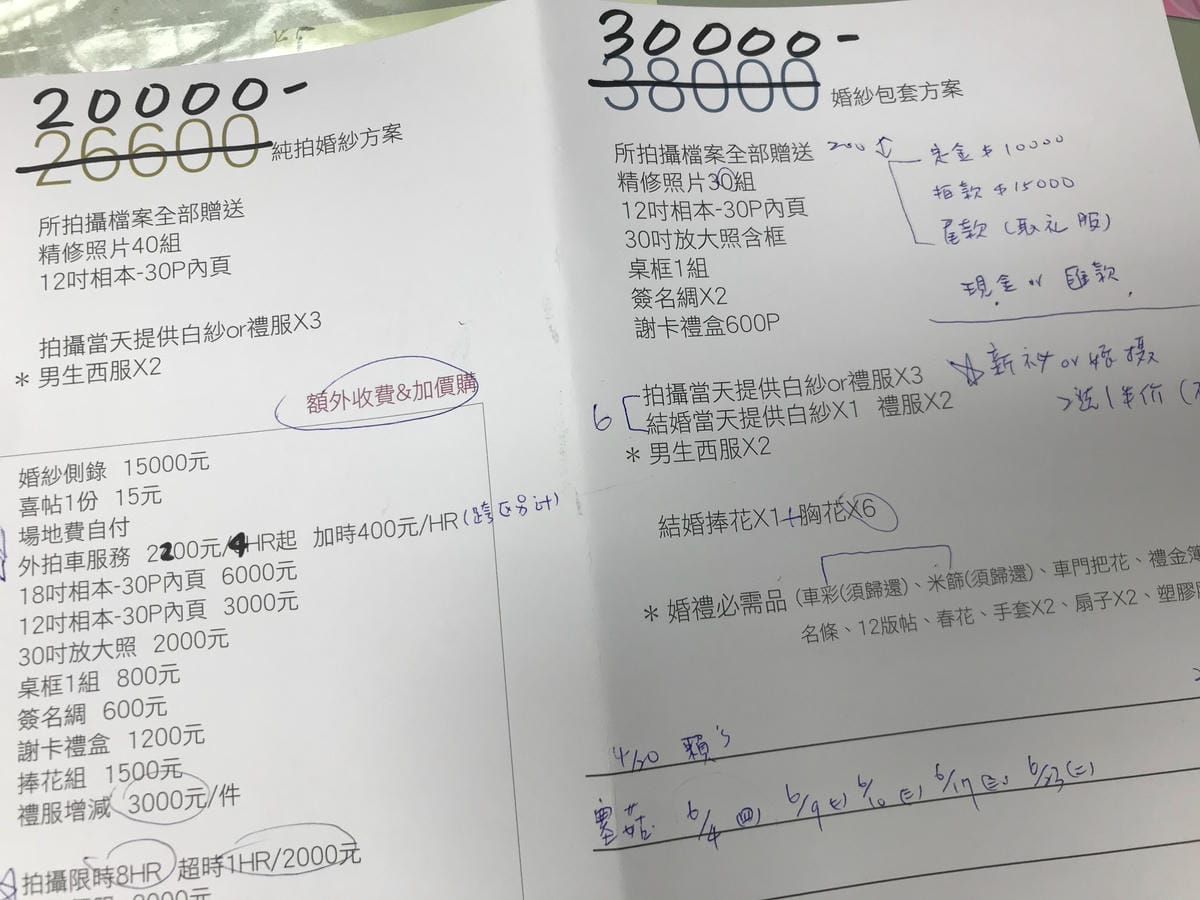 20000-
26600 純拍婚紗方案
所拍攝檔案全部贈送
精修照片40組
12吋相本-30P內頁
拍攝當天提供白紗or禮服X3
＊男生西服X2
額外收費&加價購
婚紗側錄 15000元
喜帖1份 15元
場地費自付
外拍車服務 2200元/4HR起 加時400元/HR(跨區另計)
18吋相本-30P內頁 6000元
12吋相本-30P內頁 3000元
30吋放大照 2000元
桌框1組 800元
簽名綢 600元
謝卡禮盒 1200元
捧花組 1500元
禮服增減 3000元/件
拍攝限時8HR 超時1HR/2000元
30000-
38000 婚紗包套方案
所拍攝檔案全部贈送 200↑
精修照片30組
12吋相本-30P內頁
30吋放大照含框
桌框1組
簽名綢X2
謝卡禮盒600P
定金$10000
拍款$15000
尾款(取禮服)
現金or匯款
6
拍攝當天提供白紗or禮服X3
結婚當天提供白紗X1 禮服X2
＊男生西服X2
☆新祕or婚攝
>選1半价
結婚捧花X1+胸花X6
＊婚禮必需品(車彩(須歸還)、米篩(須歸還)、車門把花、禮金簿
名條、12版帖、春花、手套X2、扇子X2、塑膠
4/30 賴's
蘑菇 6/4(四) 6/9(二) 6/10(三) 6/17(三) 6/23(二)